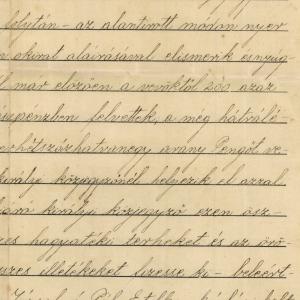 folytán - az alantirott módon nyer
okirat aláirásával elismerik és nyug
már előzően a vevőktől 200 azaz
készpénzben felvettek, a még hátrálé-
enhétszázhatvanegy arany Pengőt ve-
királyi közjegyzőnél helyezik el azzal
király közjegyző ezen ösz-
es hagyatéki terheket és az örö-
illetékeket fizesse ki - beleért-